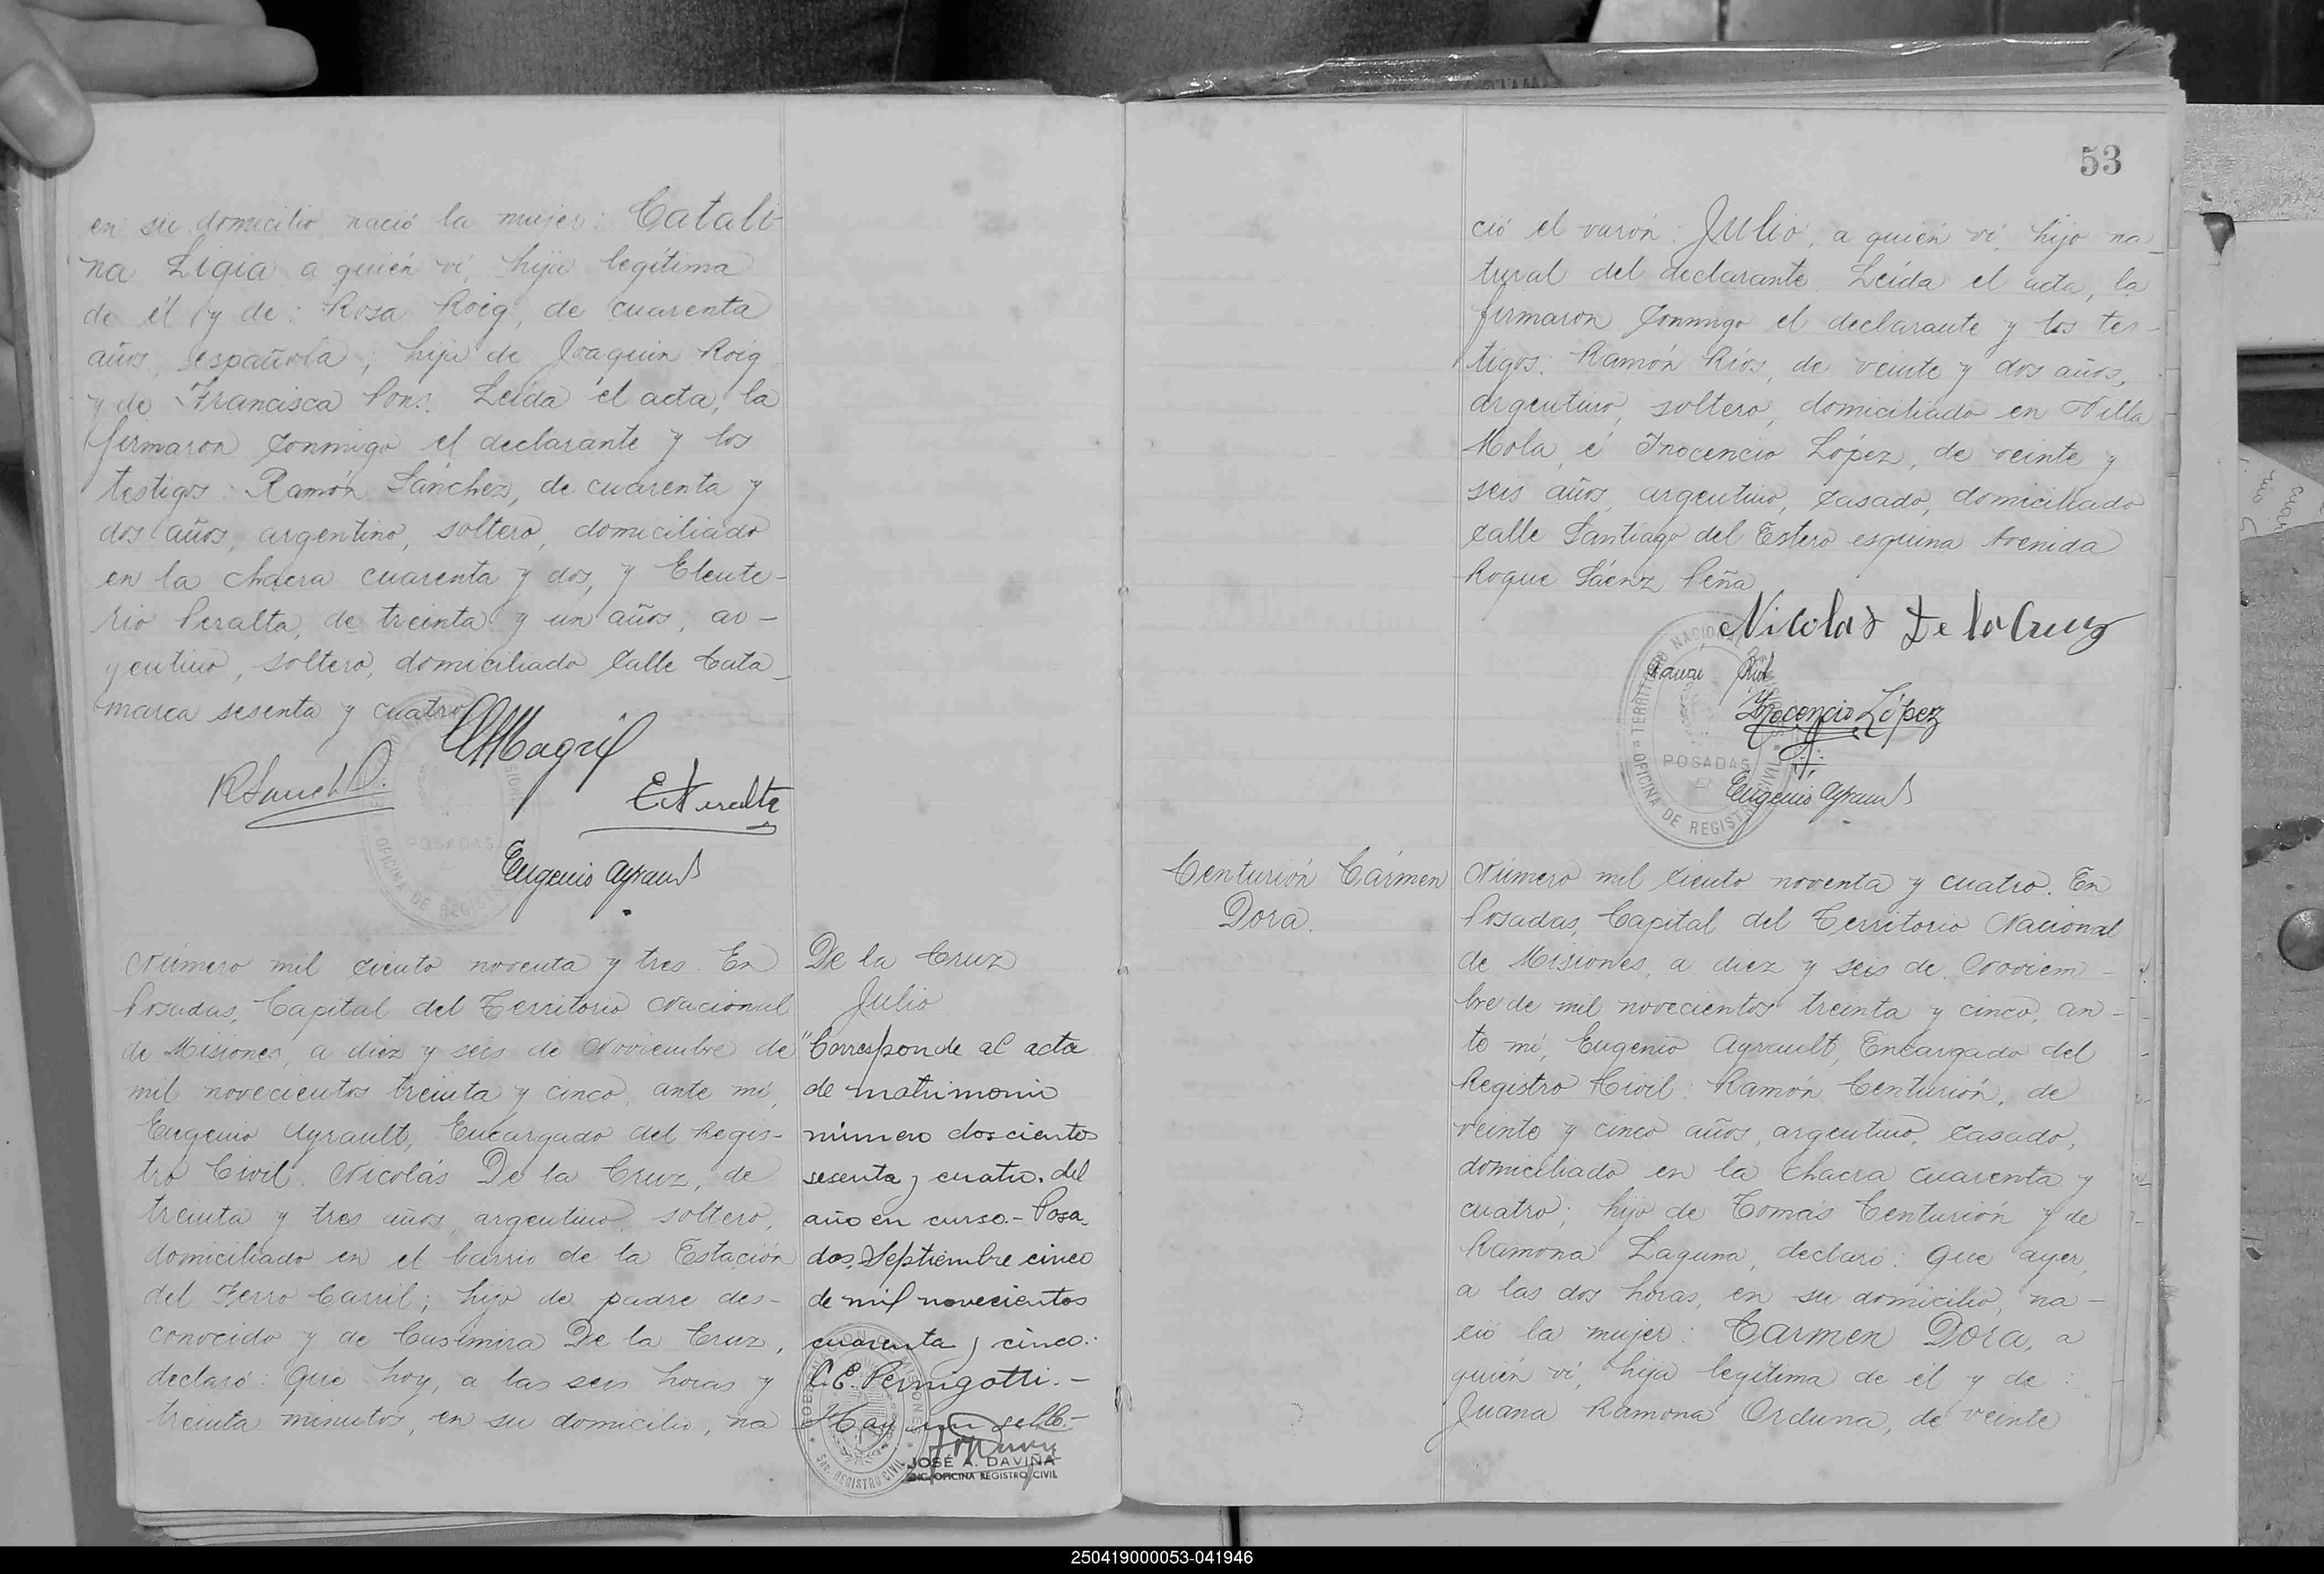 en su domicilio nació la mujer: Catali-
na Ligia a quién ví, hija legítima
de él y de: Rosa Roig, de cuarenta
años, española, hija de Joaquin Roig
y de Francisca Pons. Leída el acta, la
firmaron conmigo el declarante y los
testigos: Ramón Sánchez, de cuarenta y
dos años, argentino, soltero, domiciliado
en la chacra cuarenta y dos, y Eleute-
rio Peralta, de treinta y un años, ar-
gentino, soltero, domiciliado calle Cata-
marca sesenta y cuatro
E. Peralta
Eugenio Ayrault
Número mil ciento noventa y tres. En
Posadas, Capital del Territorio Nacional
de Misiones, a diez y seis de Noviembre de
mil novecientos treinta y cinco, ante mí,
Eugenio Ayrault, Encargado del Regis-
tro Civil: Nicolás De la Cruz, de
treinta y tres años, argentino, soltero,
domiciliado en el barrio de la Estación
del Ferro Carril; hijo de padre des-
conocido y de Casimira De la Cruz,
declaró: Que hoy, a las seis horas y
treinta minutos, en su domicilio, na
De la Cruz
Julio
"Corresponde al acta
de matrimonio
número doscientos
sesenta y cuatro. del
año en curso.- Posa-
das, Septiembre cinco
de mil novecientos
cuarenta y cinco.-
C. E. Pernigotti.-
Hay un sello.-
JOSÉ A. DAVIÑA
ENC. OFICINA REGISTRO CIVIL
53
ció el varón: Julio, a quién ví, hijo na-
tural del declarante. Leída el acta, la
firmaron conmigo el declarante y los tes-
tigos: Ramón Ríos, de veinte y dos años,
argentino, soltero, domiciliado en Villa
Mola, é Inocencio López, de veinte y
seis años, argentino, casado, domiciliado
calle Santiago del Estero esquina Avenida
Roque Sáenz Peña
Nicolas De la Cruz
Inocencio López
TERRITORIO NACIONAL
POSADAS
OFICINA DE REGISTRO CIVIL
Eugenio Ayrault
Centurión Cármen
Dora.
Número mil ciento noventa y cuatro. En
Posadas, Capital del Territorio Nacional
de Misiones, a diez y seis de Noviem-
bre de mil novecientos treinta y cinco, an-
te mí, Eugenio Ayrault, Encargado del
Registro Civil: Ramón Centurión, de
veinte y cinco años, argentino, casado,
domiciliado en la chacra cuarenta y
cuatro; hijo de Tomás Centurión y de
Ramona Laguna, declaró: Que ayer,
a las dos horas, en su domicilio, na-
ció la mujer: Carmen Dora, a
quién ví, hija legítima de él y de:
Juana Ramona Orduna, de veinte
250419000053-041946